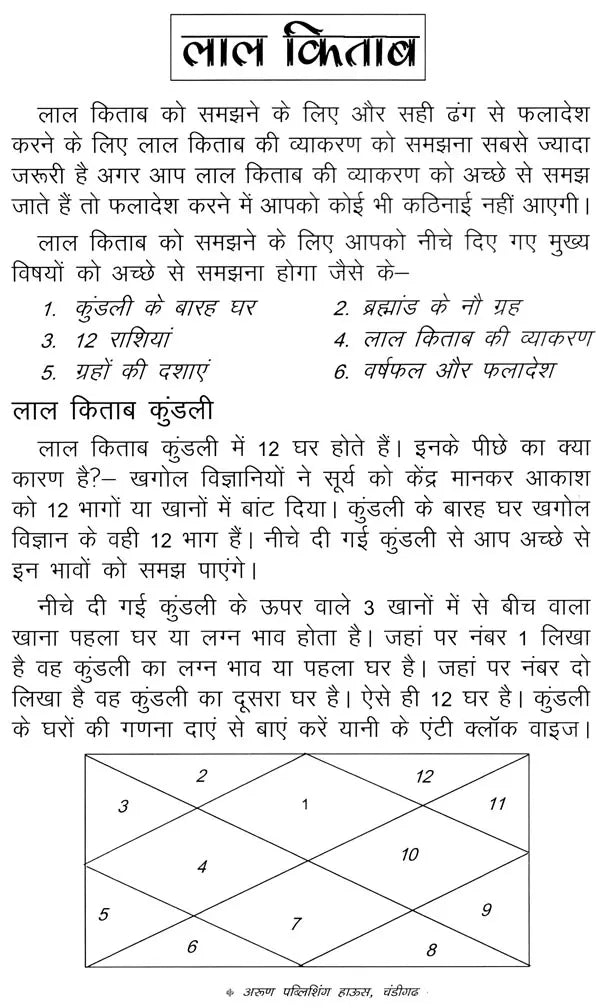 लाल किताब
लाल किताब को समझने के लिए और सही ढंग से फलादेश
करने के लिए लाल किताब की व्याकरण को समझना सबसे ज्यादा
जरूरी है अगर आप लाल किताब की व्याकरण को अच्छे से समझ
जाते हैं तो फलादेश करने में आपको कोई भी कठिनाई नहीं आएगी।
लाल किताब को समझने के लिए आपको नीचे दिए गए मुख्य
विषयों को अच्छे से समझना होगा जैसे के–
1. कुंडली के बारह घर 2. ब्रह्मांड के नौ ग्रह
3. 12 राशियां 4. लाल किताब की व्याकरण
5. ग्रहों की दशाएं 6. वर्षफल और फलादेश
लाल किताब कुंडली
लाल किताब कुंडली में 12 घर होते हैं। इनके पीछे का क्या
कारण है?– खगोल विज्ञानियों ने सूर्य को केंद्र मानकर आकाश
को 12 भागों या खानों में बांट दिया। कुंडली के बारह घर खगोल
विज्ञान के वही 12 भाग हैं। नीचे दी गई कुंडली से आप अच्छे से
इन भावों को समझ पाएंगे।
नीचे दी गई कुंडली के ऊपर वाले 3 खानों में से बीच वाला
खाना पहला घर या लग्न भाव होता है। जहां पर नंबर 1 लिखा
है वह कुंडली का लग्न भाव या पहला घर है। जहां पर नंबर दो
लिखा है वह कुंडली का दूसरा घर है। ऐसे ही 12 घर है। कुंडली
के घरों की गणना दाएं से बाएं करें यानी के एंटी क्लॉक वाइज।
2 12
3 1 11
4 10
5 7 9
6 8
अरूण पब्लिशिंग हाऊस, चंडीगढ